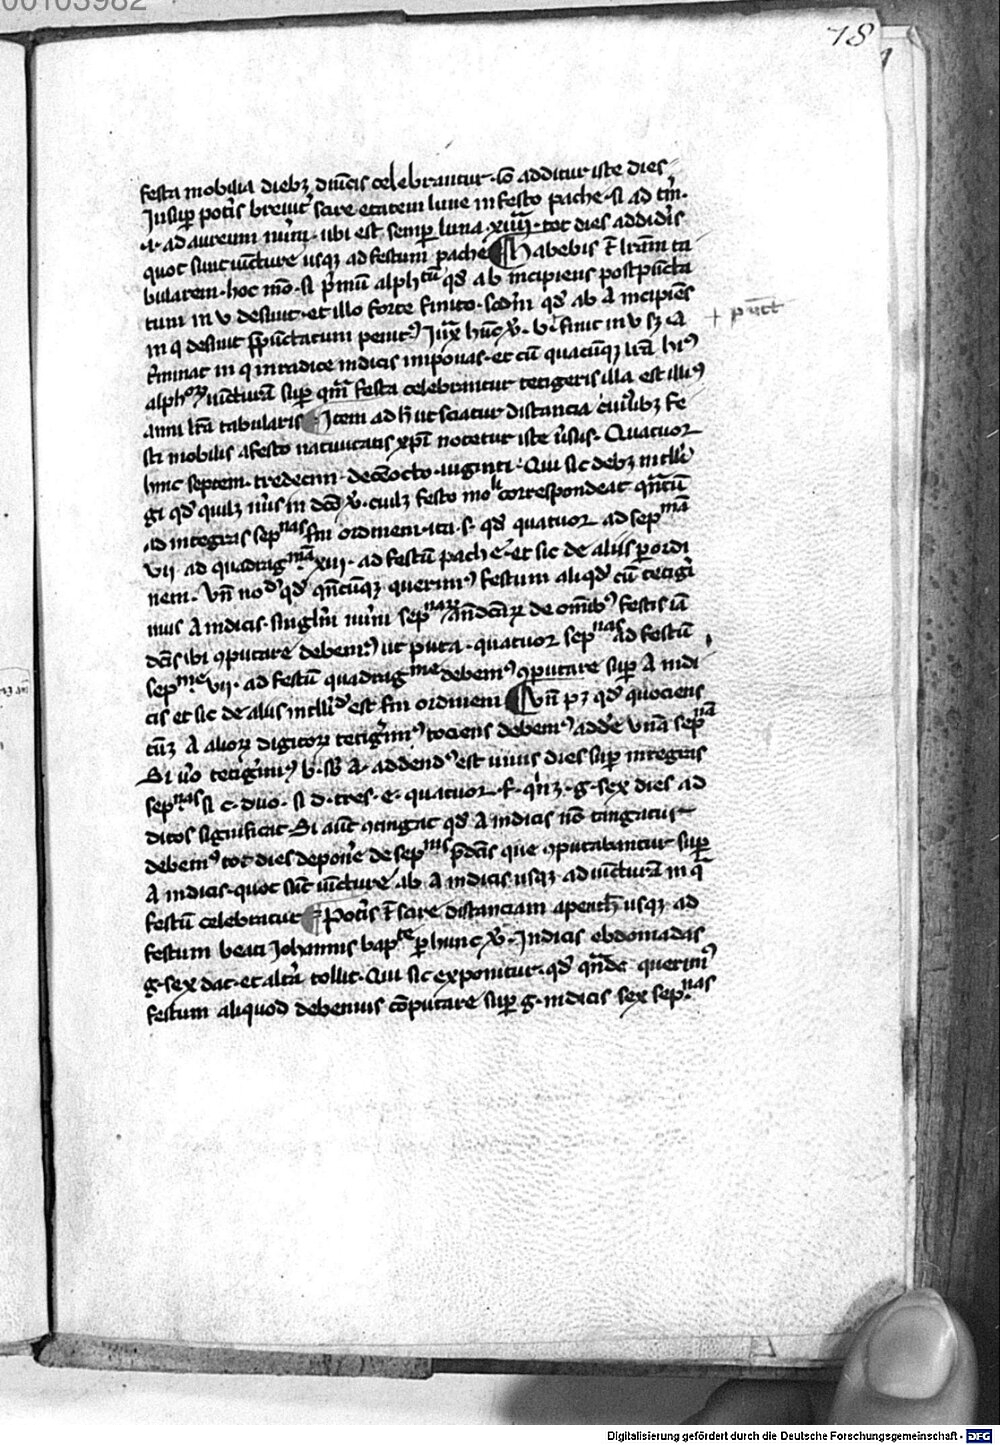 00103982
78
festa mobilia diebꝫ diuīcis celebrantur · iō additur iste dies
Insuꝑ potīs breuit̄ scire etatem lune in festo pache · si ad tm̄ ·
·1· ad aureum nūm · ubi est semꝑ luna xiiii · tot dies addidīs
quot sunt iūcture usqꝫ ad festum pache Habebis t̄ lr̄am ta
bularem · hoc mō · si pͥmū alphtū qd̓ ab incipiens postpūcta
tum in v desinit · et illo forte finito · scd̄m qd̓ ab A incipiēs
in q desinit p̄pūctatum penit᷒ Iux̄ hūc v̓ · b finit in v sꝫ A
+ pūct
t̄minat in q in radice indicis imponas · et cū quacūqꝫ lr̄a hi᷒
alphoꝝ iūcturā suꝑ qm̄ festa celebrantur tetigeris illa est illi᷒
anni lr̄a tabularis Item ad h̄ ut sciatur distancia cuiuslibꝫ fe
sti mobilis a festo natiuitatis xp̄i notetur iste ūsus · Quatuor
hinc septem · tredecim · deceocto · uiginti · Qui sic debꝫ intelli
gi qd̓ quilꝫ nūs in dc̄o v̓ · cuilꝫ festo moli correspondeat qn̄tū
ad integras sepnas scd̄m ordinem · ita · s · qd̓ quatuor ad sepmā
vii · ad quadragmā xiii · ad festū pache · et sic de aliis ꝑ ordi
nem · Vn̄ no qd̓ qn̄cūqꝫ querim᷒ festum aliqd̓ cū tetigi
mus A indicis · singl̄m nūm sepnaꝝ an̄dc̄aꝝ de omīb᷒ festis iā
dc̄is ibi ꝯputare debem᷒ ut puta · quatuor sepnas ad festū
sepme vii · ad festū quadragme debem᷒ ꝯputare suꝑ A indi
cis et sic de aliis intelld̓ est scd̄m ordinem Vn̄ pꝫ qd̓ quociens
cūqꝫ A alioꝝ digitoꝝ tetigim᷒ tociens debem᷒ adde̓ vnā sepnā
Si v̓o tetigim᷒ b · sb A · addend᷒ est unus dies suꝑ integras
sepnas si c · duo · si d · tres · e · quatuor · f · qn̄ꝫ · g · sex dies ad
ditos significat Si aūt ꝯtingat qd̓ A indicis nō tingatur
debem᷒ tot dies depone̓ de sepnis p̄dc̄is que ꝯputabantur suꝑ
A indicis · quot sūt iūcture ab A indicis usqꝫ ad iūcturā in q̄
festū celebratur Potīs t̄ scire distanciam a penth̄ usqꝫ ad
festum beati Johannis bapte ꝑ hunc v̓ · Indicis ebdomadas
g · sex dat · et altm̄ tollit · Qui sic exponitur · qd̓ qn̄de querim᷒
festum aliquod debemus cōputare suꝑ g · indicis sex sepnas
Digitalisierung gefördert durch die Deutsche Forschungsgemeinschaft - DFG